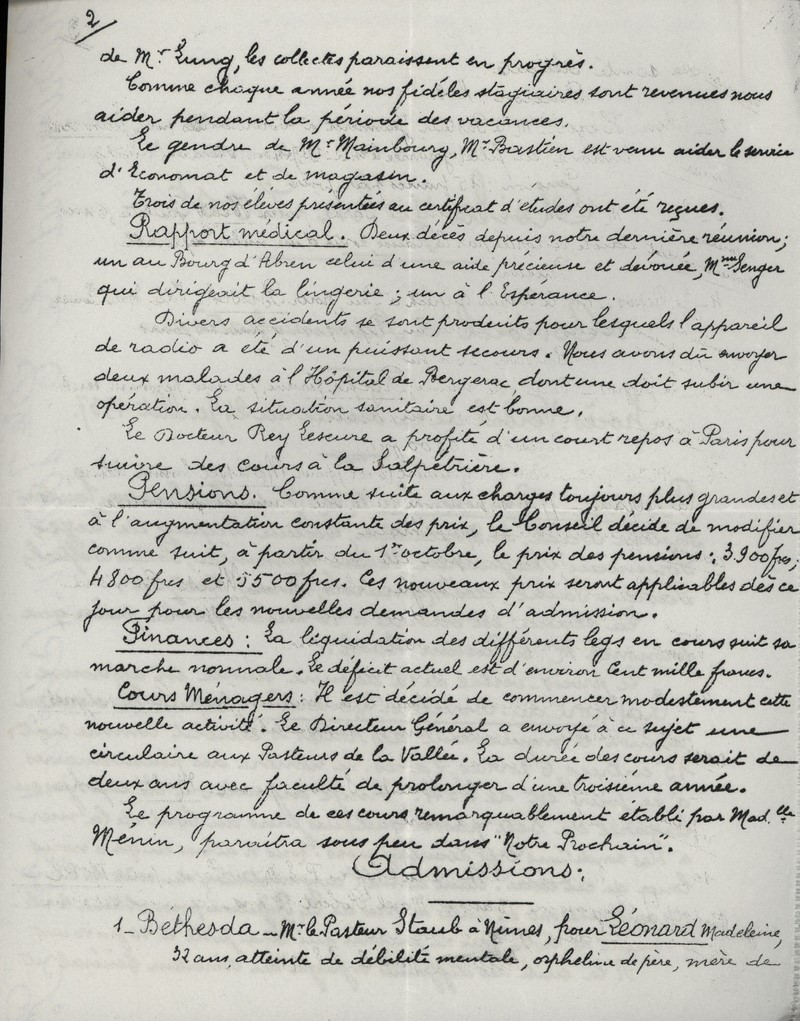 2
de Mr Lung, les collectes paraissent en progrès.
Comme chaque année nos fidèles stagiaires sont revenues nous
aider pendant la période des vacances.
Le gendre de Mr Mainbourg, Mr Bastien est venu aider le service
d'Economat et de magasin.
Trois de nos élèves présentées au certificat d'études ont été reçues.
Rapport médical. Deux décès depuis notre dernière réunion;
un au Bourg d'Abren celui d'une aide précieuse et dévouée, Mme Senger
qui dirigeait la lingerie; un à l'Espérance.
Divers accidents se sont produits pour lesquels l'appareil
de radio a été d'un puissant secours. Nous avons dû envoyer
deux malades à l'Hôpital de Bergerac dont une doit subir une
opération. La situation sanitaire est bonne.
Le Docteur Rey Lescure a profité d'un court repos à Paris pour
suivre des cours à la Salpêtrière.
Pensions. Comme suite aux charges toujours plus grandes et
à l'augmentation constante des prix, le Conseil décide de modifier
comme suit, à partir du 1er octobre, le prix des pensions: 3.900 frs,
4800 frcs et 5500 frcs. Ces nouveaux prix seront applicables dès ce
jour pour les nouvelles demandes d'admission.
Finances: La liquidation des différents legs en cours suit sa
marche normale. Le déficit actuel est d'environ Cent mille francs.
Cours Ménagers: Il est décidé de commencer modestement cette
nouvelle activité. Le Directeur Général a envoyé à ce sujet une
circulaire aux Pasteurs de la Vallée. La durée des cours serait de
deux ans avec faculté de prolonger d'une troisième année.
Le programme de ces cours remarquablement établi par Mad.lle
Ménin, paraîtra sous peu dans "Notre Prochain".
Admissions:
1_ Béthesda_ Mr le Pasteur Staub à Nîmes, pour Léonard Madeleine,
32 ans, atteinte de débilité mentale, orpheline de père, mère de